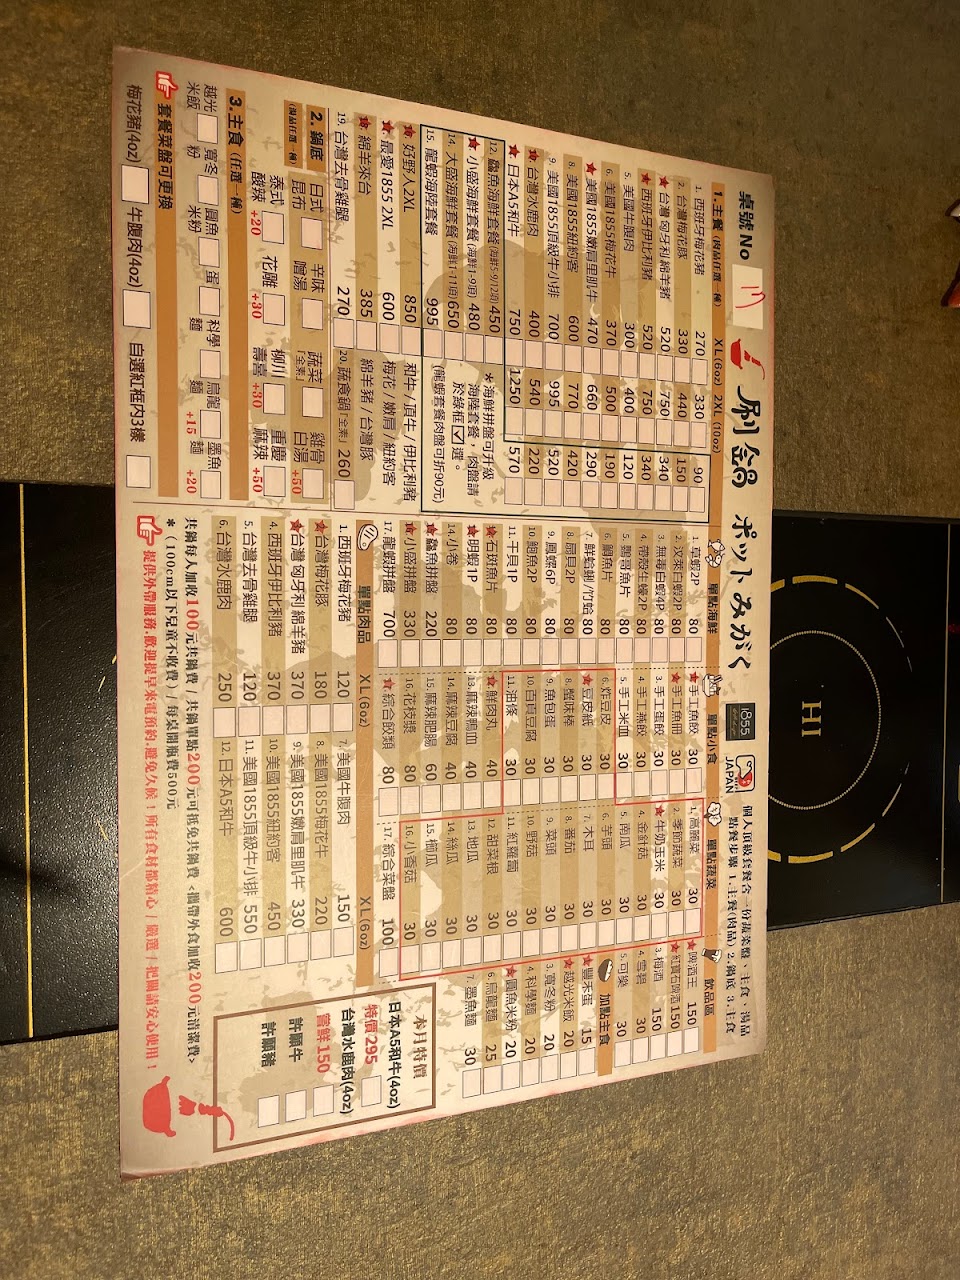 桌號 No 17
刷鍋 ポットみがく
1855
JAPAN
個人頂級套餐含一份蔬菜盤、主食、湯品
點餐步驟 1.主餐(肉品) 2.鍋底 3.主食
1.主餐 (肉品任選一種) XL(6oz) 2XL(10oz)
1. 西班牙梅花豬 270 330 90
2. 台灣梅花豚 330 440 150
★台灣匈牙利綿羊豬 520 750 340
★西班牙伊比利豬 520 750 340
5. 美國牛腹肉 300 400 120
6. 美國1855梅花牛 370 500 190
★美國1855嫩肩里肌牛 470 660 290
8. 美國1855紐約客 600 770 420
9. 美國1855頂級牛小排 700 995 520
★台灣水鹿肉 400 540 220
★日本A5和牛 750 1250 570
12. 鱻魚海鮮套餐(海鮮5-9/13項) 450
★小盛海鮮套餐(海鮮1-9項) 480
14. 大盛海鮮套餐(海鮮1-11項) 650
15. 龍蝦海陸套餐 995
*海鮮拼盤可升級
海陸套餐,肉盤請
於綠框☑選。
(龍蝦套餐肉盤可折90元)
★好野人2XL 850 和牛/頂牛/伊比利豬
★最愛1855 2XL 600 梅花/嫩肩/紐約客
★綿羊來台 385 綿羊豬/台灣豚
19. 台灣去骨雞腿 270
20. 蔬食鍋「全素」 260
2. 鍋底 (湯品任選一種)
日式昆布
辛味噌湯
蔬菜「全素」
雞骨白湯 +50
泰式酸辣 +20
花雕 +30
柳川壽喜 +30
重慶麻辣 +50
3.主食 (任選一種)
越光米飯
寬冬粉
圓魚米粉
蛋
科學麵
烏龍麵 +15
墨魚麵 +20
套餐菜盤可更換
梅花豬(4oz)
牛腹肉(4oz)
自選紅框內3樣
單點海鮮
1. 草蝦2P 80
2. 汶萊白蝦2P 80
3. 無毒白蝦4P 80
4. 帶殼生蠔2P 80
5. 鱘骨魚片 80
6. 鯛魚片 80
7. 鮮蛤蜊/竹蛤 80
8. 扇貝2P 80
9. 鳳螺6P 80
10. 鮑魚2P 80
11. 干貝1P 80
★石斑魚片 80
★明蝦1P 80
14. 小卷 80
★鱻魚拼盤 220
★小盛拼盤 330
17. 龍蝦拼盤 700
單點小食
★手工魚餃 30
★手工魚冊 30
3. 手工蛋餃 30
4. 手工燕餃 30
5. 手工米血 30
6. 炸豆皮 30
★豆皮紙 30
8. 蟹味棒 30
9. 魚包蛋 30
10. 百頁豆腐 30
11. 油條 30
★鮮肉丸 40
13. 麻辣鴨血 40
14. 麻辣豆腐 40
15. 麻辣肥腸 60
16. 花枝漿 80
★綜合餃類 80
單點蔬菜
1. 高麗菜 30
2. 季節蔬菜 30
★牛奶玉米 30
4. 金針菇 30
5. 南瓜 30
6. 芋頭 30
7. 木耳 30
8. 番茄 30
9. 菜頭 30
10. 野菇 30
11. 紅蘿蔔 30
12. 甜菜根 30
13. 地瓜 30
14. 絲瓜 30
15. 櫛瓜 30
16. 小香菇 30
17. 綜合菜盤 100
飲品區
★啤酒王 150
★紅寶石啤酒 150
3. 梅酒 150
4. 雪碧 30
5. 可樂 30
加點主食
★豐禾蛋 15
★越光米飯 20
3. 寬冬粉 20
4. 科學麵 20
★圓魚米粉 20
6. 烏龍麵 25
7. 墨魚麵 30
單點肉品 XL(6oz) XL(6oz)
1. 西班牙梅花豬 120
★台灣梅花豚 180
★台灣匈牙利綿羊豬 370
4. 西班牙伊比利豬 370
5. 台灣去骨雞腿 120
6. 台灣水鹿肉 250
7. 美國牛腹肉 150
8. 美國1855梅花牛 220
9. 美國1855嫩肩里肌牛 330
10. 美國1855紐約客 450
11. 美國1855頂級牛小排 550
12. 日本A5和牛 600
本月特價
日本A5和牛(4oz)
特價295
台灣水鹿肉(4oz)
嘗鮮150
許願牛
許願豬
共鍋每人加收100元共鍋費/共鍋單點200元可抵免共鍋費 <攜帶外食加收200元清潔費>
*(100cm以下兒童不收費)/每桌開瓶費500元
提供外帶服務.歡迎提早來電預約.避免久候!所有食材都精心/嚴選/把關請安心使用!
HI